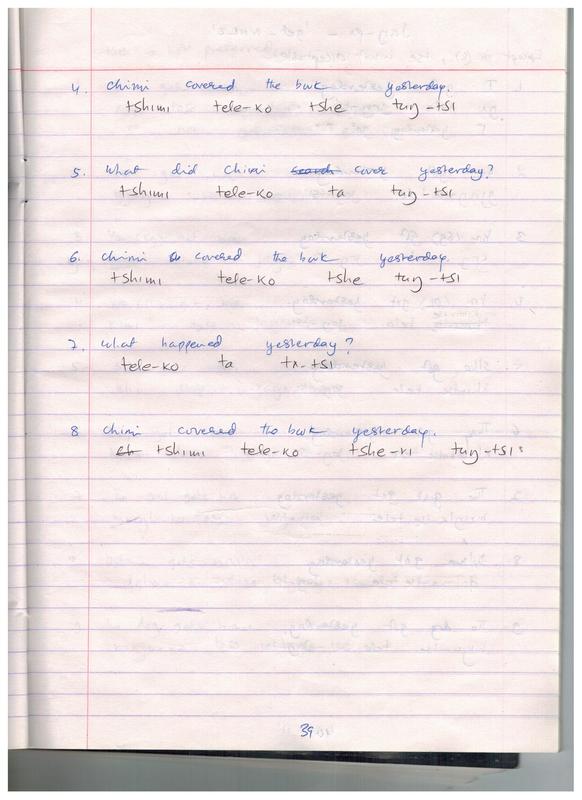 4. Chimi covered the book yesterday.
tshimi tele-ko tshe tuŋ-tsi
5. What did Chimi cover yesterday?
tshimi tele-ko ta tuŋ-tsi
6. Chimi covered the book yesterday.
tshimi tele-ko tshe tuŋ-tsi
7. What happened yesterday?
tele-ko ta tx-tsi
8 Chimi covered the book yesterday.
tshimi tele-ko tshe-ri tuŋ-tsi
39